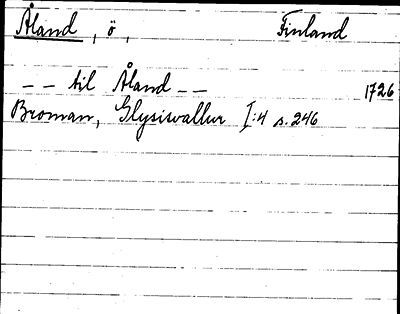 Åland, ö, Finland
-- til Åland -- 1726
Broman, Glysiswallur I:4 s. 246